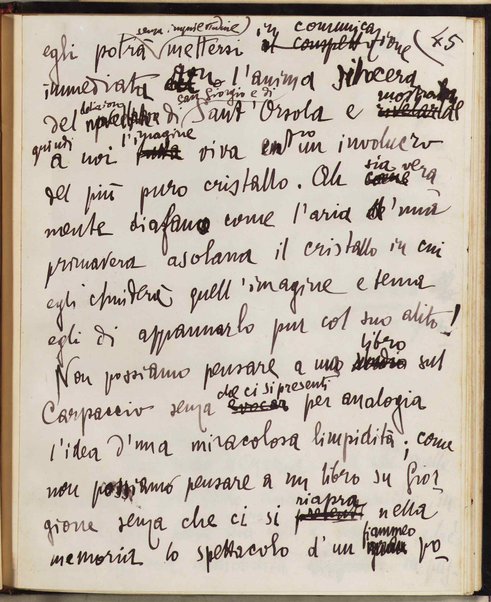 45
senza ingratitudine) in comunica
egli potrà mettersi zione
immediata con l'anima sincera
del di San Giorgio e di Sant'Orsola e mostrarla
quindi a noi l'imagine viva entro un involucro
del più puro cristallo. Oh sia vera
mente diafano come l'aria d'una
primavera asolana il cristallo in cui
egli chiuderà quell'imagine e tema
egli di appannarlo pur col suo alito!
Non possiamo pensare a un libro sul
Carpaccio senza che ci si presenti per analogia
l'idea d'una miracolosa limpidità; come
non possiamo pensare a un libro su Gior
gione senza che ci si riapra nella
memoria lo spettacolo d'un fiammeo po